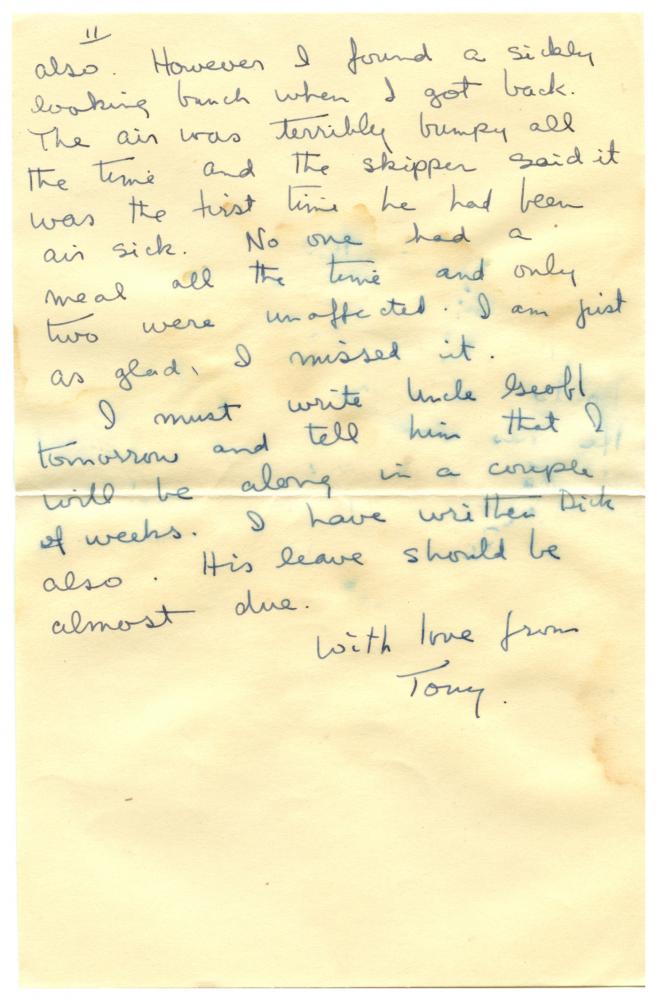 11
also. However I found a sickly
looking bunch when I got back.
The air was terribly bumpy all
the time and the skipper said it
was the first time he had been
air sick. No one had a
meal all the time and only
two were unaffected. I am just
as glad, I missed it.
I must write Uncle Geoff
tomorrow and tell him that I
will be along in a couple
of weeks. I have written Dick
also. His leave should be
almost due.
With love from
Tony.